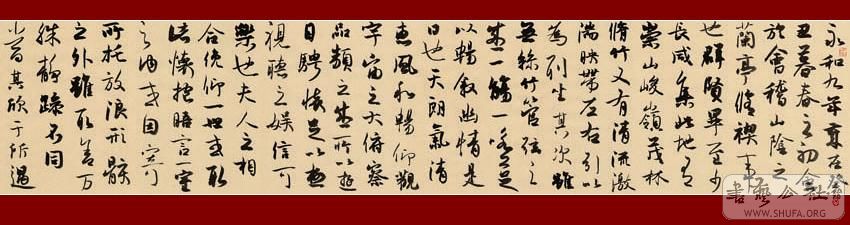 永和九年歲在癸
丑暮春之初會
於會稽山陰之
蘭亭脩禊事
也群賢畢至少
長咸集此地有
崇山峻嶺茂林
脩竹又有清流激
湍映帶左右引以
為列坐其次雖
無絲竹管弦之
盛一觴一詠足
以暢敘幽情是
日也天朗氣清
惠風和暢仰觀
宇宙之大俯察
品類之盛所以遊
目騁懷足以極
視聽之娛信可
樂也夫人之相
俛仰一世或取
諸懷抱晤言一室
之內或因寄
所托放浪形骸
之外雖取舍萬
殊靜躁不同
當其欣于所遇
書藝公社
WWW.SHUFA.ORG